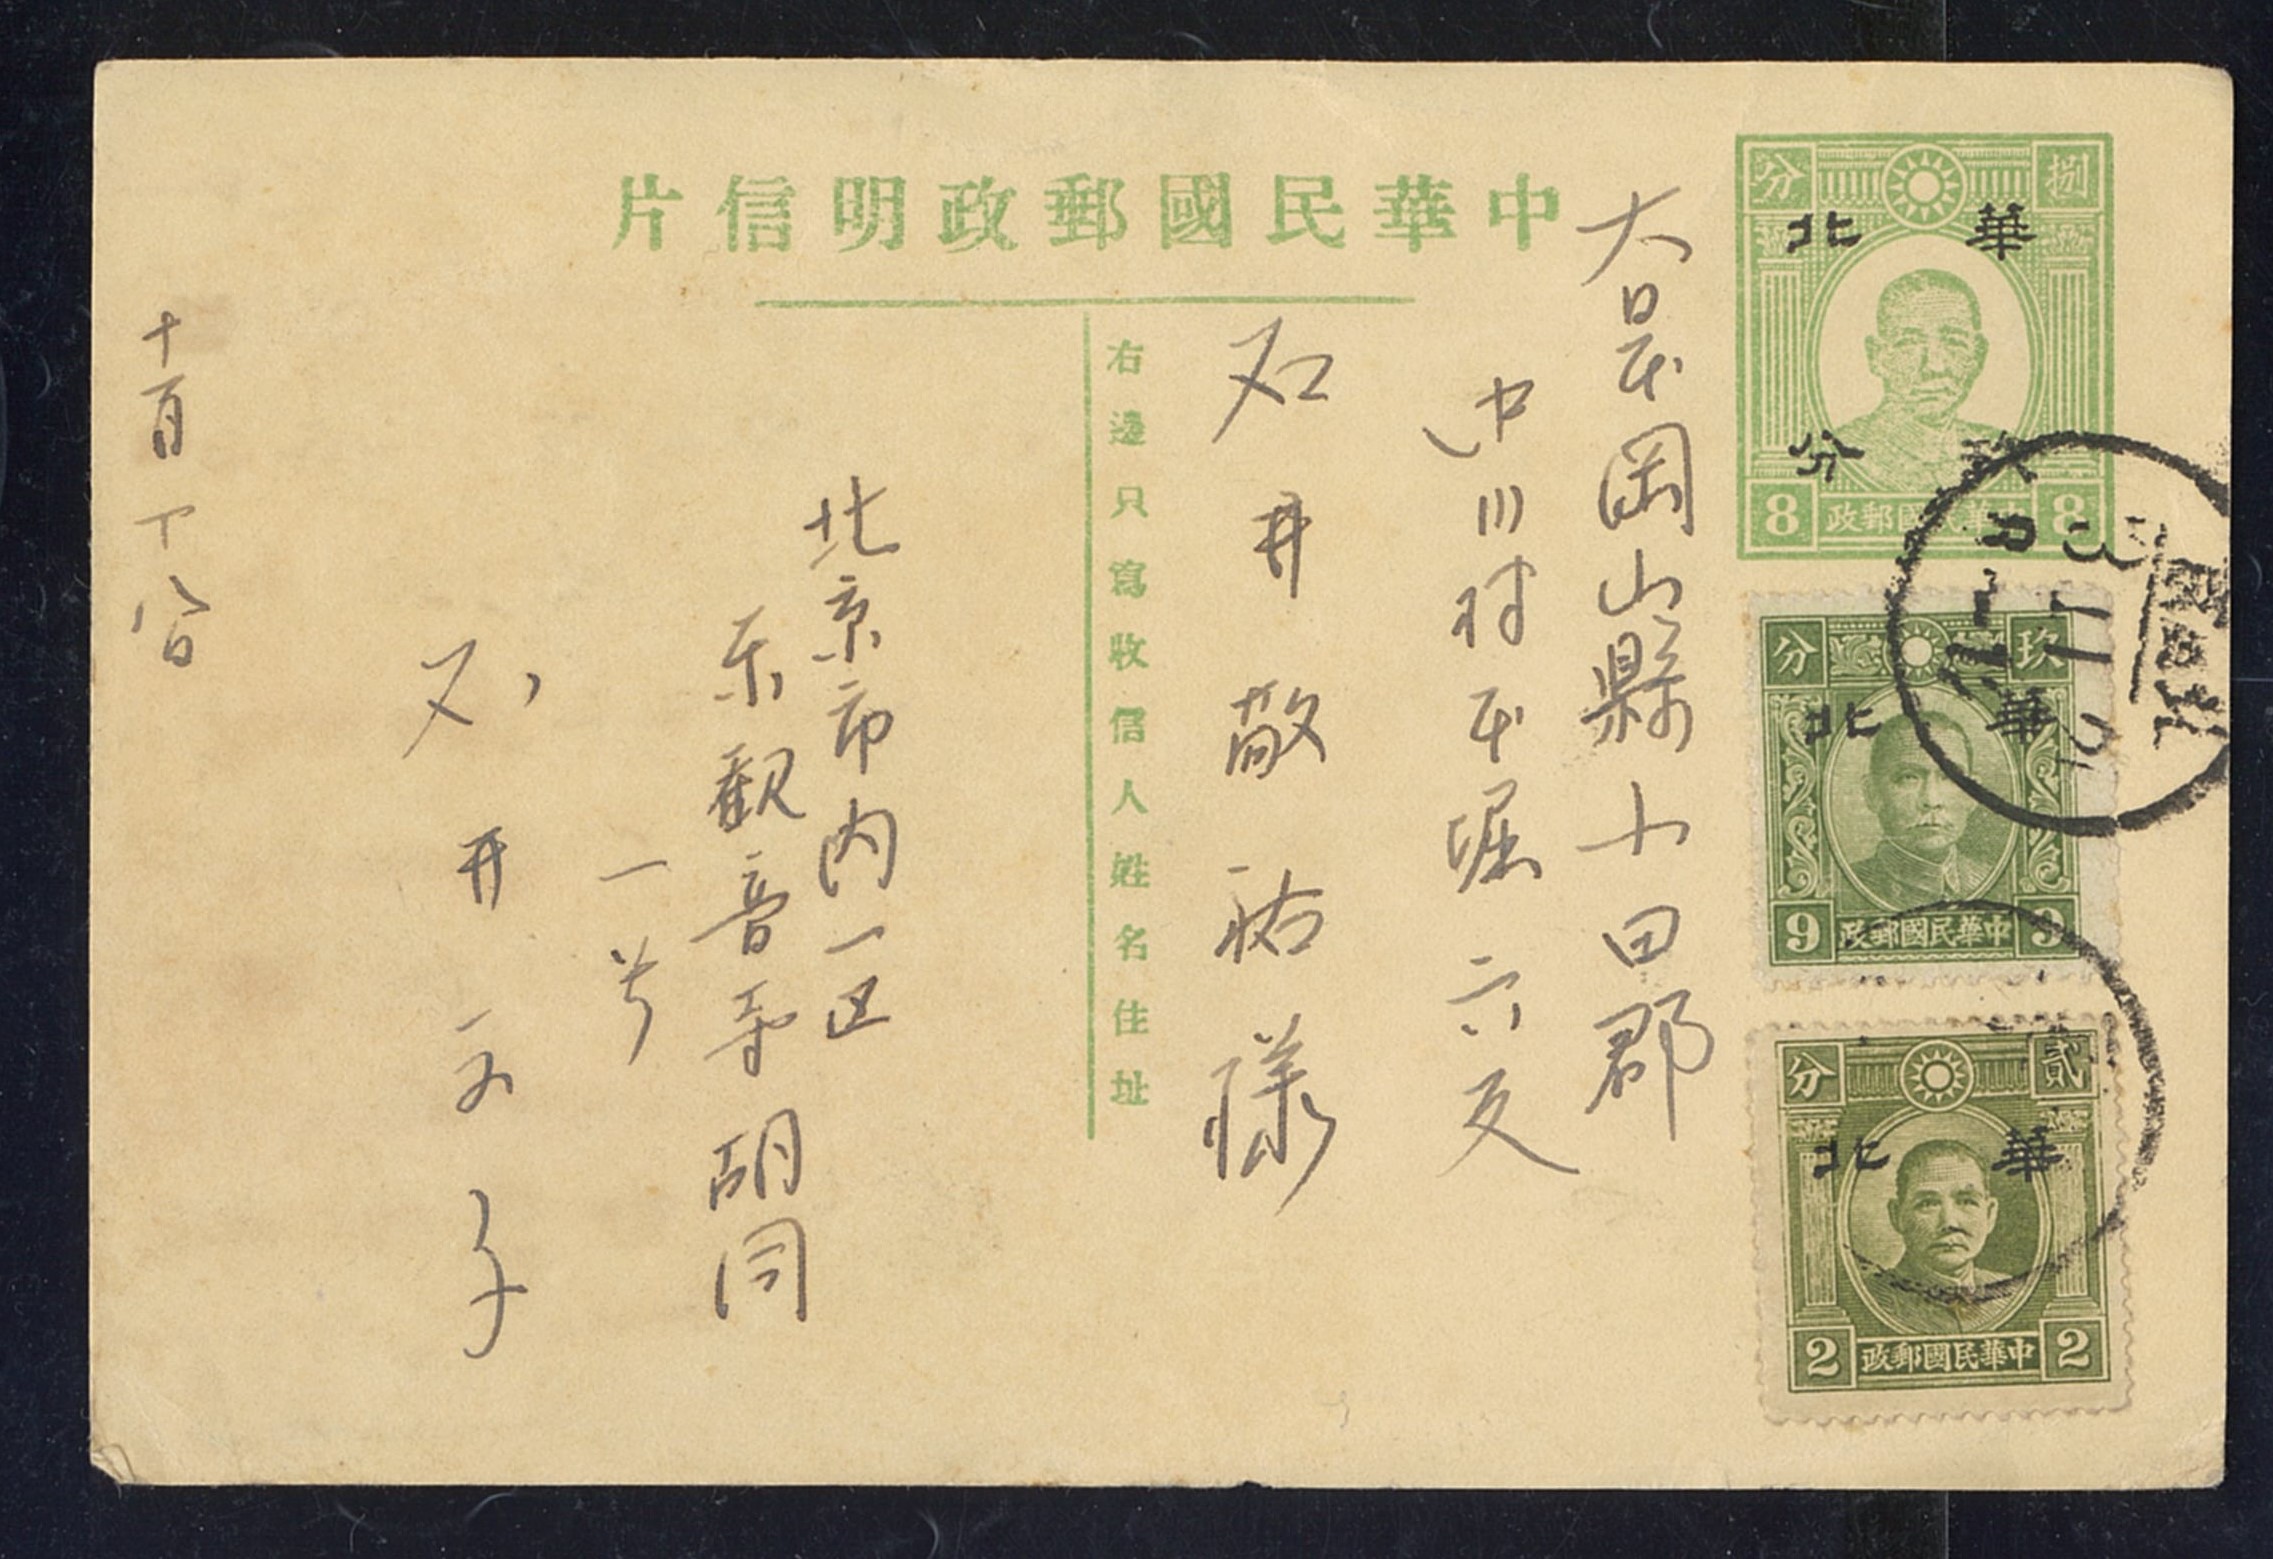 中華民國郵政明信片
捌分
華北
玖分
8 中華民國郵政 8
玖分
華北
9 中華民國郵政 9
貳分
華北
2 中華民國郵政 2
大日本岡山縣小田郡
中川村本堀六反
石井敬祐様
右邊只寫收信人姓名住址
北京市内一区
东観音寺胡同
一号
石井文子
十一月十八日